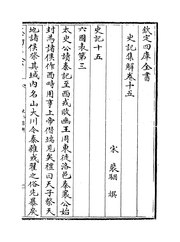 欽定四庫全書
史記集解卷十五
宋 裴駰 撰
史記十五
六國表第三
太史公讀秦記至犬戎敗幽王周東徙洛邑秦襄公始
封為諸侯作西畤用事上帝僭端見矣禮曰天子祭天
地諸侯祭其域内名山大川今秦雜戎翟之俗先暴戾